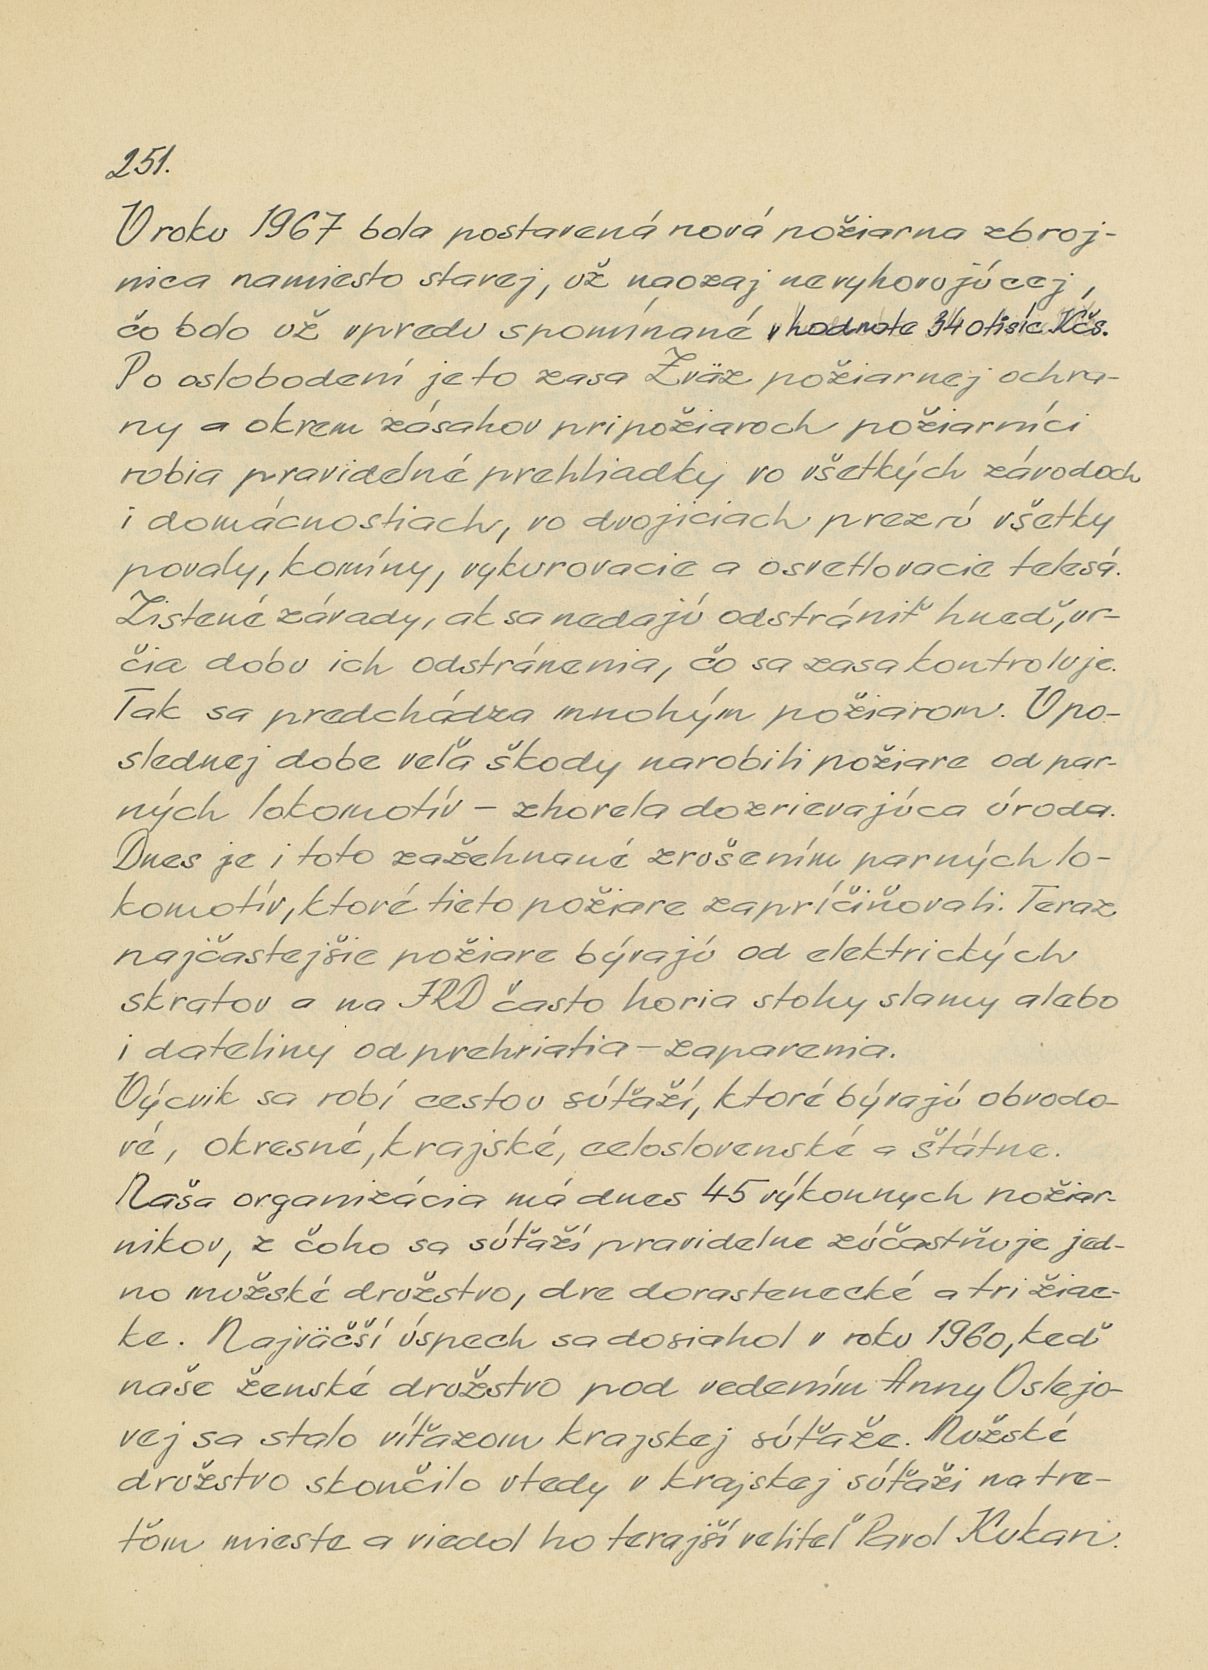 251.
V roku 1967 bola postavená nová požiarna zbroj-
nica namiesto starej, už naozaj nevyhovujúcej,
čo bolo už vpredu spomínané v hodnote 340 tisíc Kčs.
Po oslobodení je to zasa Zväz požiarnej ochra-
ny a okrem zásahov pri požiaroch požiarníci
robia pravidelné prehliadky vo všetkých závodoch
i domácnostiach, vo dvojiciach prezrú všetky
povaly, komíny, vykurovacie a osvetlovacie telesá.
Zistené závady, ak sa nedajú odstrániť hneď, ur-
čia dobu ich odstránenia, čo sa zasa kontroluje.
Tak sa predchádza mnohým požiarom. V po-
slednej dobe veľa škody narobili požiare od par-
ných lokomotív – zhorela dozrievajúca úroda.
Dnes je i toto zažehnané zrušením parných lo-
komotív, ktoré tieto požiare zapríčiňovali. Teraz
najčastejšie požiare bývajú od elektrických
skratov a na JRD často horia stohy slamy alebo
i dateliny od prehriatia – zaparenia.
Výcvik sa robí cestou súťaží, ktoré bývajú obvodo-
vé, okresné, krajské, celoslovenské a štátne.
Naša organizácia má dnes 45 výkonnych požiar-
nikov, z čoho sa súťaží pravidelne zúčastňuje jed-
no mužské družstvo, dve dorastenecké a tri žiac-
ke. Najväčší úspech sa dosiahol v roku 1960, keď
naše ženské družstvo pod vedením Anny Oslejo-
vej sa stalo víťazom krajskej súťaže. Mužské
družstvo skončilo vtedy v krajskej súťaži na tre-
ťom mieste a viedol ho terajší veliteľ Pavol Kukan.